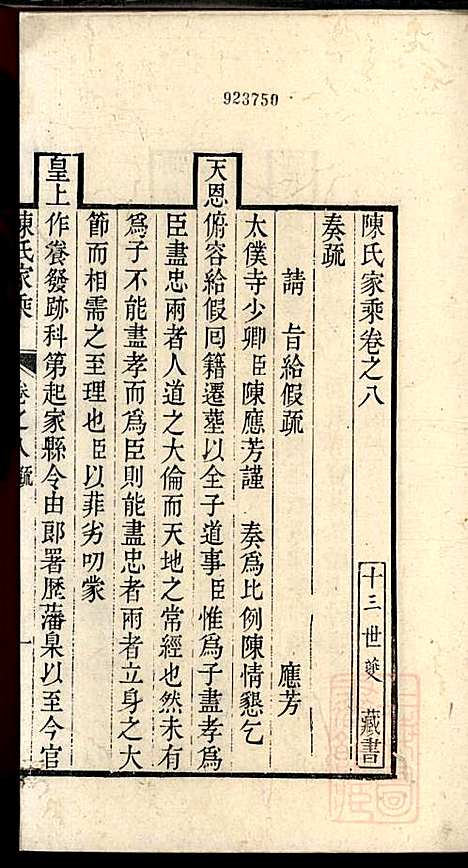 923750
陳氏家乘卷之八
十三世夑 藏書
奏疏
請 旨給假疏 應芳
太僕寺少卿臣陳應芳謹 奏爲比例陳情懇乞
天恩俯容給假囘籍遷墓以全子道事臣惟爲子盡孝爲
臣盡忠兩者人道之大倫而天地之常經也然未有
爲子不能盡孝而爲臣則能盡忠者兩者立身之大
節而相需之至理也臣以菲劣叨蒙
皇上作養發跡科第起家縣令由郎署歷藩臬以至今官
陳氏家乘 卷之八 疏 一